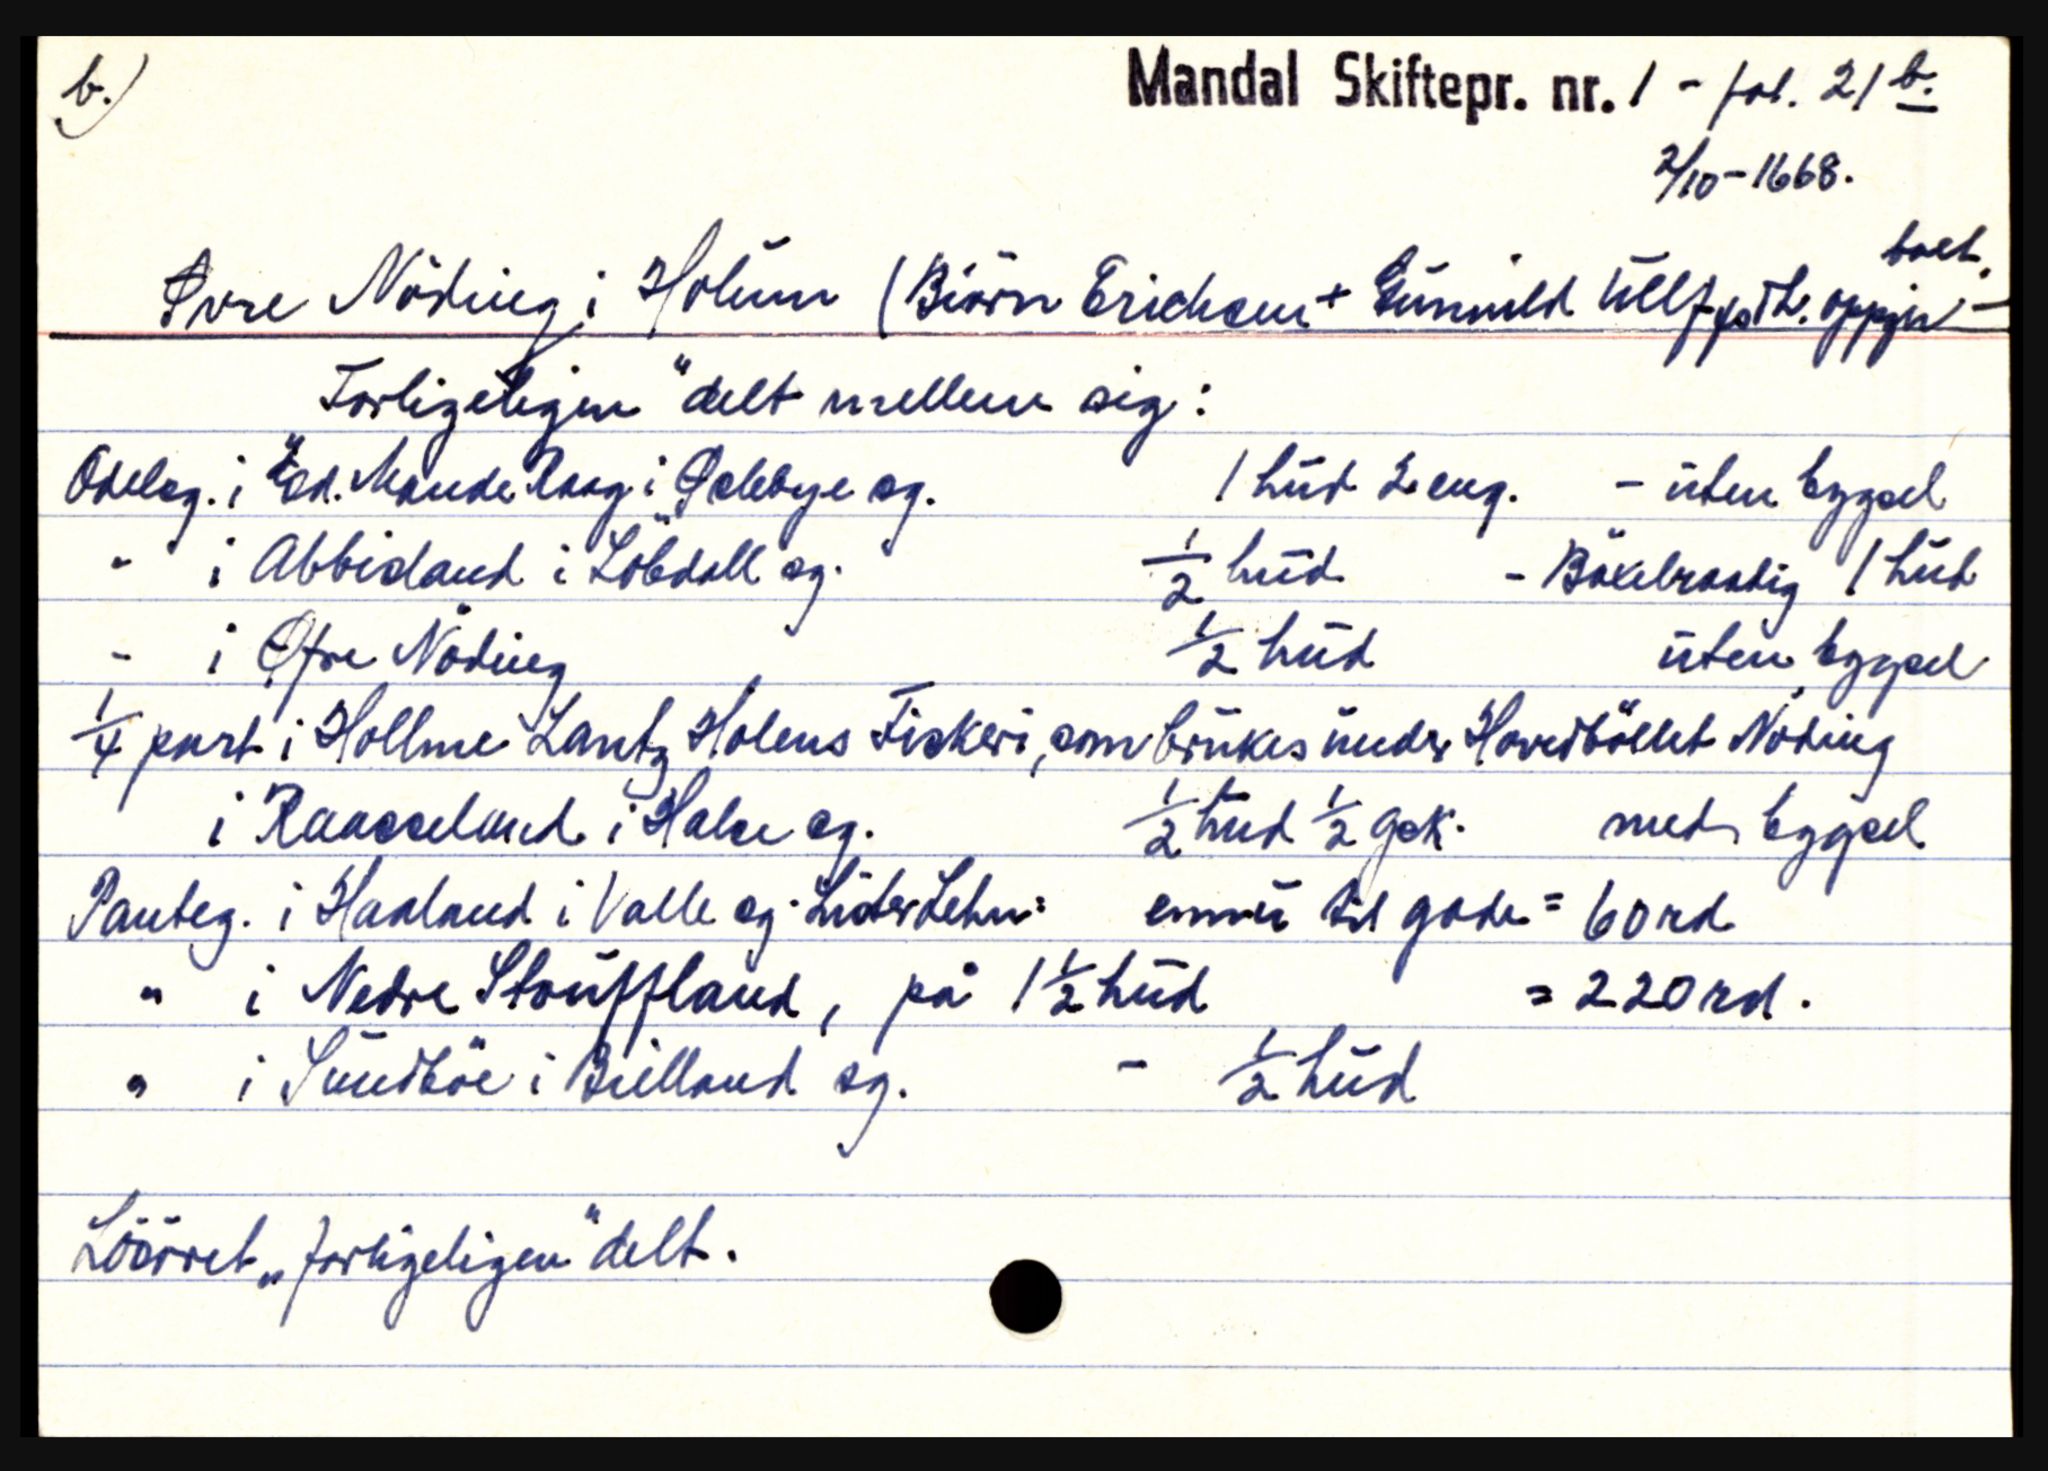 b.)
Mandal Skiftepr. nr. 1 - fol. 21 b.
2/10-1668.
boet.
Øvre Nöding i Holum (Biörn Erichsen + Gunnild Ullfsdt. oppgir -
Forligeligen" delt mellem sig:
Odelsg. i Mande i Øslebye sg. 1 hud 2 eng. - uten bygsel
" i Abbisland i Löbdall sg. 1/2 hud - Böxelraadig 1 hud
- i Øfre Nöding 1/2 hud uten bygsel
1/4 part i Hollme Lantz Holens Fiskeri, som brukes under Hovedböllet Nöding
i Raasseland i Halse sg. 1/2 hud 1/2 gsk. med bygsel
Panteg. i Haaland i Valle sg. Lister Lehn: ennu til gode = 60 rd
" i Nedre Stouffland, på 1 1/2 hud = 220 rd.
" i Sundböe i Bielland sg. - 1/2 hud
Lööret „forligeligen" delt.